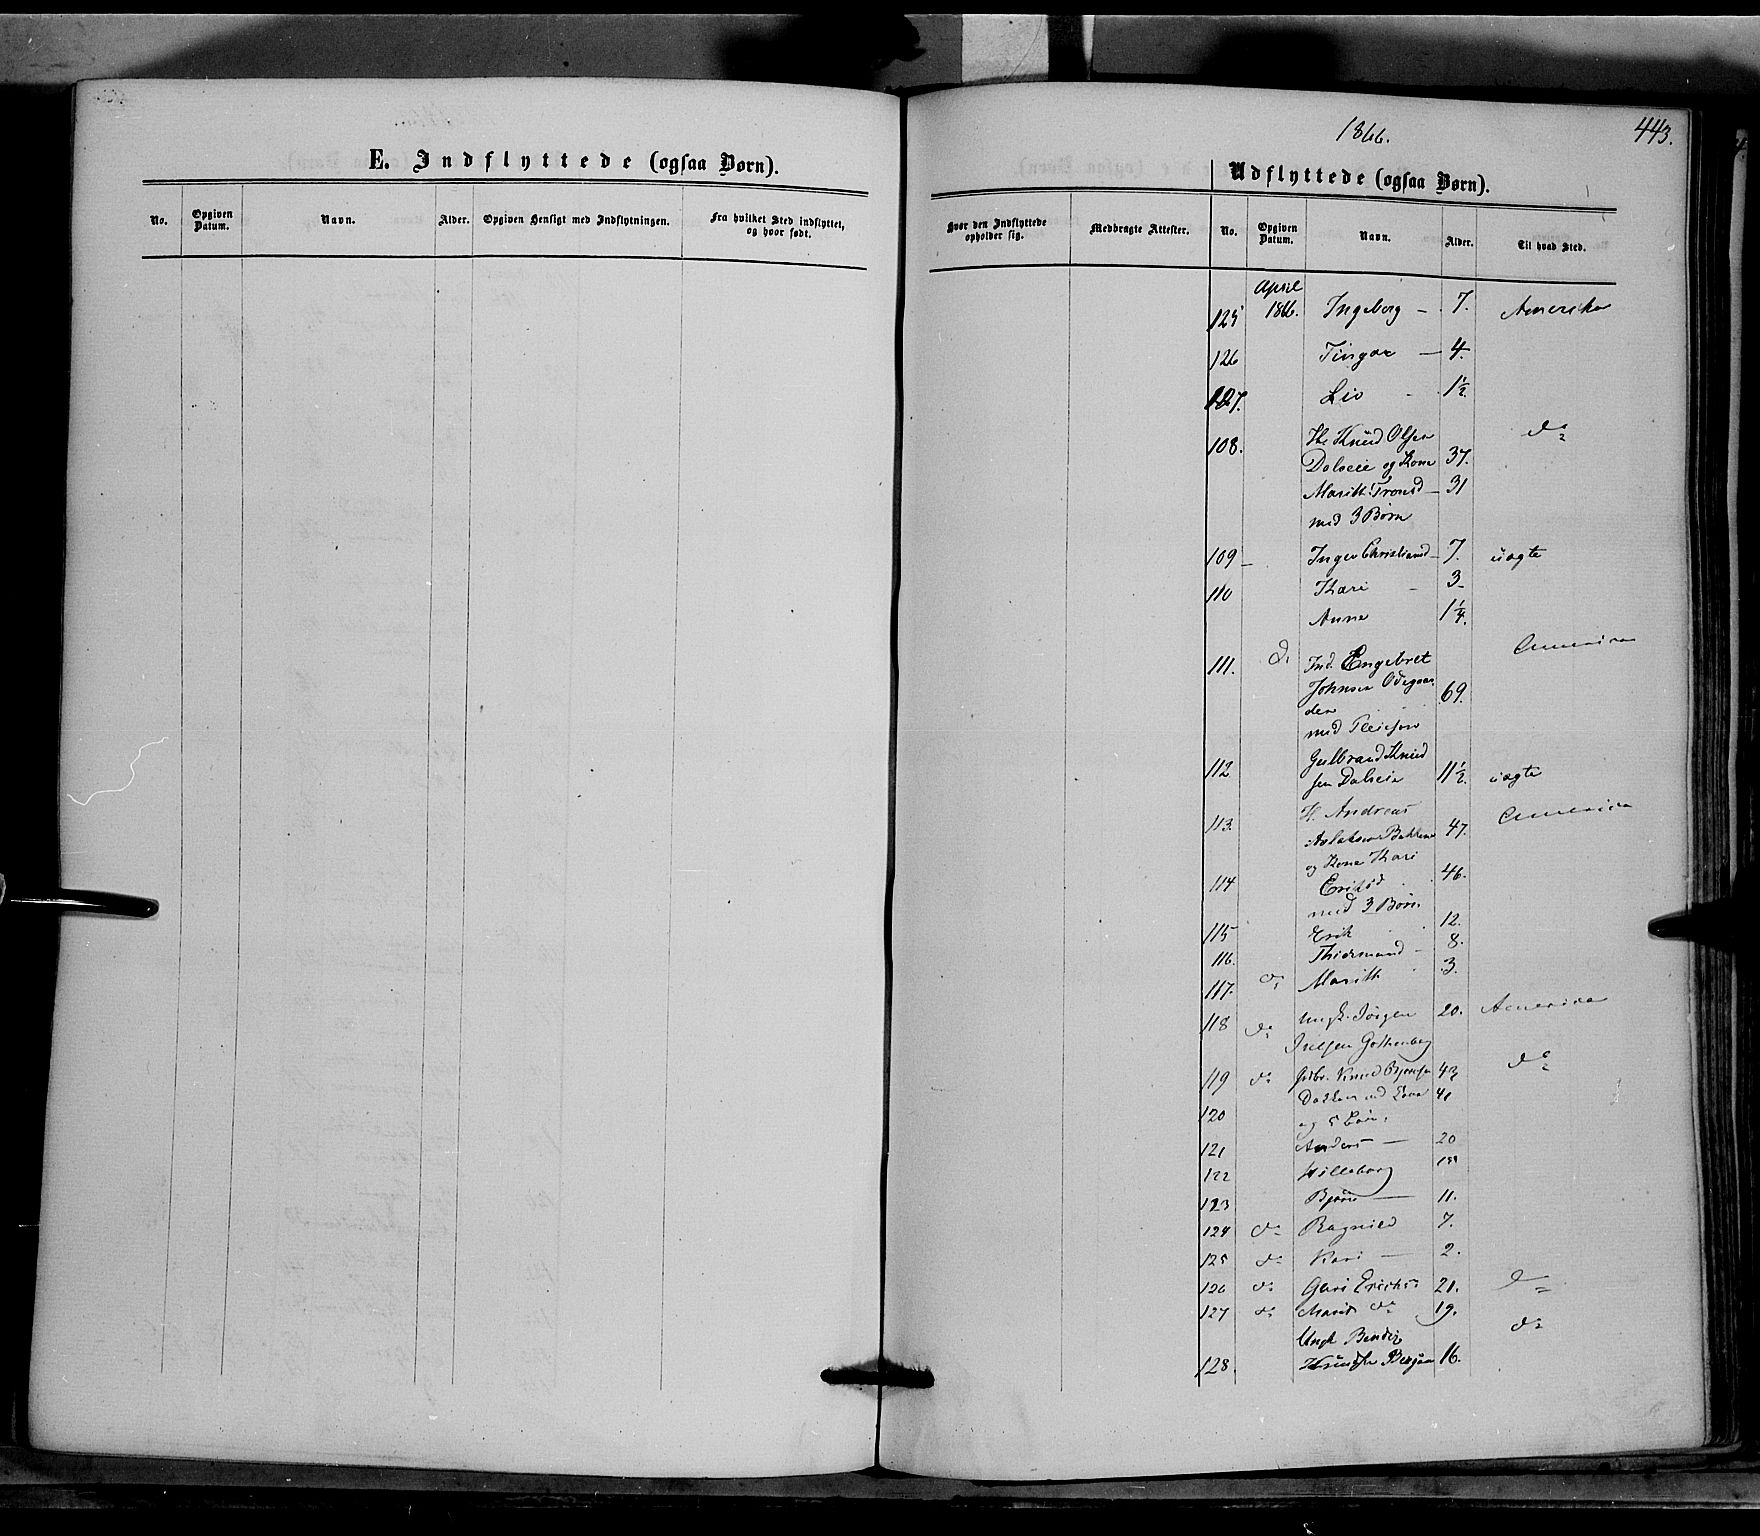 E. Indflyttede (ogsaa Børn).
No. Opgiven Datum. Navn. Alder. Opgiven Hensigt med Indflytningen. Fra hvilket Sted indflyttet, og hvor født.
1866.
443.
Udflyttede (ogsaa Børn).
Hvor den Indflyttede opholder sig. Medbragte Attester. No. Opgiven Datum. Navn. Alder. Til hvad Sted.
April
125 1866. Ingeborg — 7. Amerika
126 — 4.
127. Liv 1½.
108. Knud Olsen do
Dalseie og Kone 37.
Maritt Tronsd — 31
med 3 Børn
109 — Inger Christiansd — 7. uægte
110 Kari - 3 -
Anne 1¼.
111. do Ind. Engebret America
Johnsen Ødegaar 69.
den
med Pleiesøn
112 Gulbrand Knud
sen Dalseie 11½. uægte
113. Andreas America
Aslaksen Bakken 47.
og Kone Kari
114 Eriksd 46.
med 3 Børn
115 Erik 12.
116. 8.
117. do Maritt 3.
118 do Ungk. Jørgen 20. America
Gothenberg
119 do Knud Bjørnsen 43 do
120 med Kone 41
og 5 Børn
121 Anders — 20
122 Hilleborg
123 Bjørn — 11.
124 do Ragnild 7.
125 do Kari — 2.
126 do Guri Eriksd 21. do
127 do Marit do 19.
Ungk. do
128. 16.